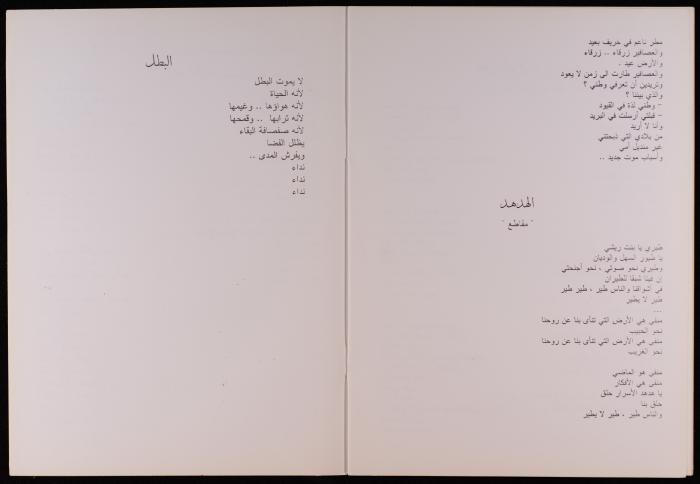 مطر ناعم في خريف بعيد
والعصافير زرقاء .. زرقاء
والأرض عيد .
والعصافير طارت الى زمن لا يعود
وتريدين أن تعرفي وطني ؟
والذي بيننا ؟
- وطني لذة في القيود
- قبلتي أرسلت في البريد
وأنا لا أريد
من بلادي التي ذبحتني
غير منديل أمي
وأسباب موت جديد ..
الهدهد
" مقاطع "
طيري يا بنت ريشي
يا طيور السهل والوديان
وطيري نحو صوتي ، نحو أجنحتي
إن فينا شبقا للطيران
في أشواقنا والناس طير ، طير طير
طير لا يطير
...
منفى هي الأرض التي تنأى بنا عن روحنا
نحو الحبيب
منفى هي الأرض التي تنأى بنا عن روحنا
نحو الغريب
منفى هو الماضي
منفى هي الأفكار
يا هدهد الأسرار حلق
حلق بنا
والناس طير ، طير لا يطير
البطل
لا يموت البطل
لأنه الحياة
لأنه هواؤها .. وغيمها
لأنه ترابها .. وقمحها
لأنه صفصافة البقاء
يظلل الفضا
ويفرش المدى ..
نداء
نداء
نداء